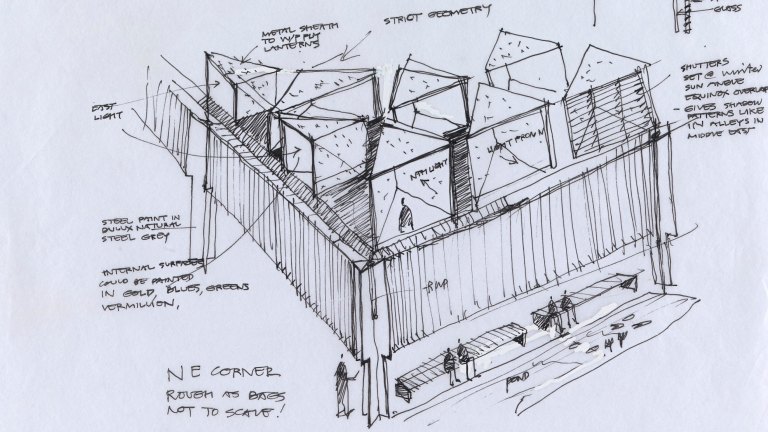 METAL SHEATH
TO W/P PLY
LANTERNS
STRICT GEOMETRY
GLASS
EAST
LIGHT
SHUTTERS
SET @ WINTER
SUN ANGLE
EQUINOX OVERLAP
- GIVES SHADOW
PATTERNS LIKE
IN ALLEYS IN
MIDDLE EAST
NTH LIGHT
LIGHT FROM N
STEEL PAINT IN
DULUX NATURAL
STEEL GREY
INTERNAL SURFACES
COULD BE PAINTED
IN GOLD, BLUES, GREENS
VERMILLION,
RWP
POND
N E CORNER
ROUGH AS BAGS
NOT TO SCALE!